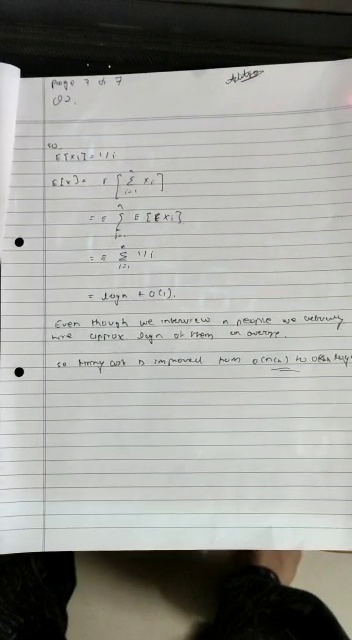 Page 7 of 7
Q2.
so
E[Xi] = 1/i
E[x] = E [ n Σ i=1 Xi ]
= E n Σ i=1 E [E Xi]
= E n Σ i=1 1/i
= logn + O(1).
Even though we interview n people we actually
hire approx logn of them on average.
so hiring cost is improved from O(nCh) to